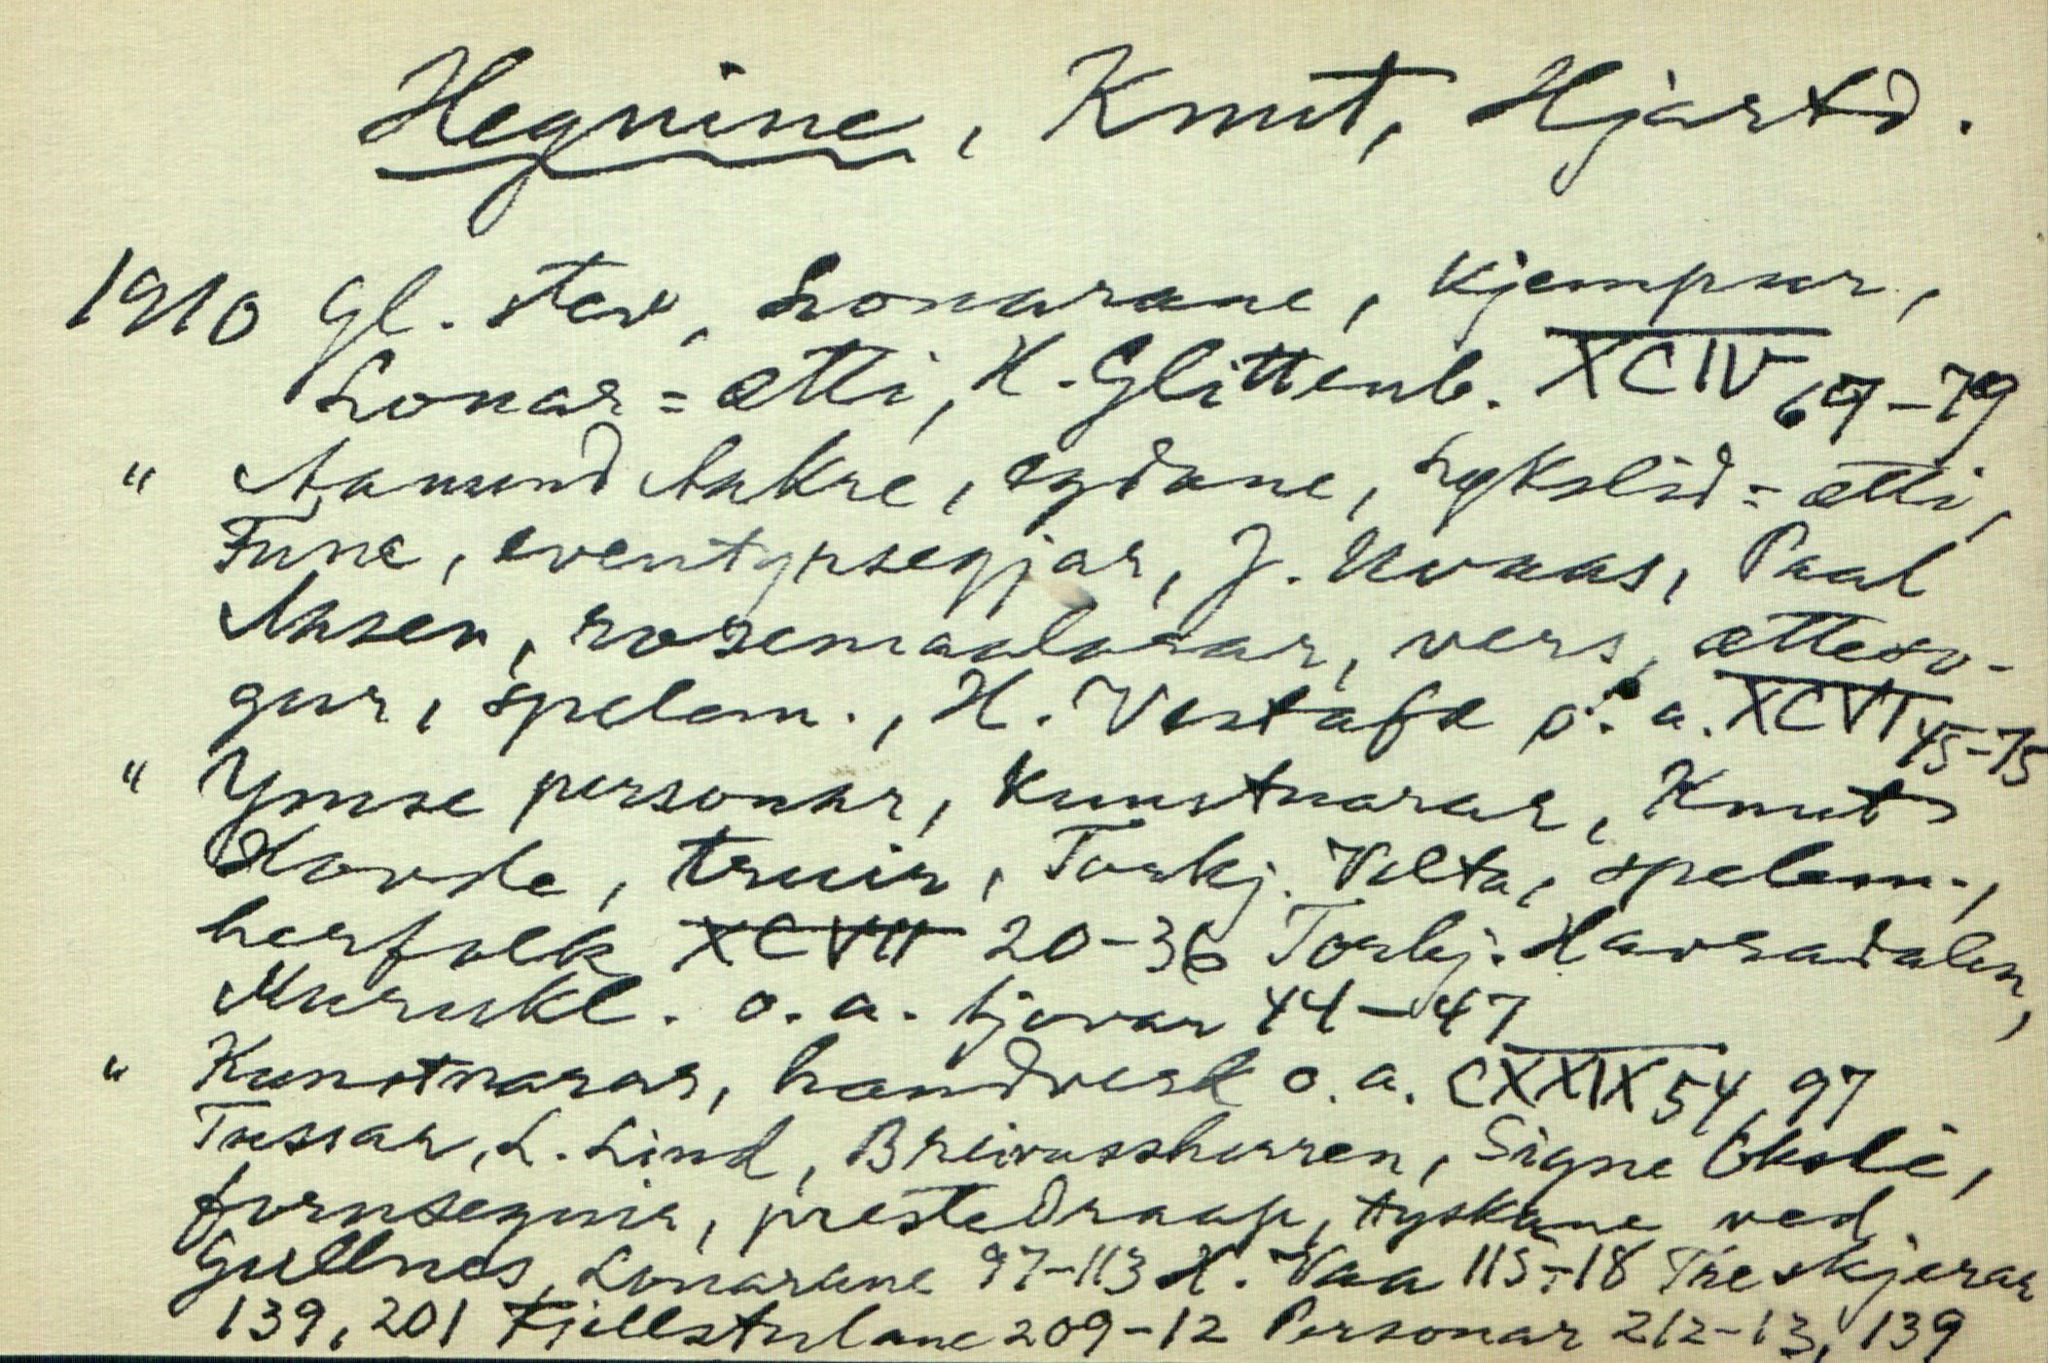 Hegnine, Knut, Hjartd.
1910 Gl. stev, Lonarane, kjempur,
Lonar=ætti, H. Glittenb. XCIV 69-79
" Aamund Aakre, eydane, Lykslid=ætti,
Fune, eventyrsegjar, J. Uvaas, Paal
Aasen, rosemaalarar, vers, ættesv-
gur, spelem., H. Vestafe o. a. XCVI 45-75
" Ymse personar, kunstnarar, Knut
Hovde, truir, Torkj. Valta, spelem.,
herfolk XCVII 20-36 Torbj. Havradalen,
Murukl. o. a. tjovar 44-47
" Kunstnarar, handverk o. a. CXXIX 54, 97
Tussar, L. Lind, Breivasshorren, Signe Økslè,
fornsegnir, prestedraap, tyskane ved
Gullnes, Lonarane 97-113 H. Vaa 115-18 Treskjerar
139, 201 Fjellstulane 209-12 Personar 212-13, 139